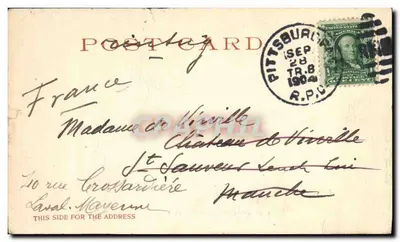 POST CARD
PITTSBURG
SEP
28
TR.8
1904
R.P.O.
France
Madame de Vioville
Château de Vioville
St Sauveur
Manche
40 rue Crossardière
Laval. Mayenne
THIS SIDE FOR THE ADDRESS